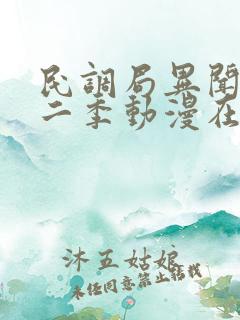 民調局異聞
二季動漫在
沐五姑娘
未经同意禁止转载